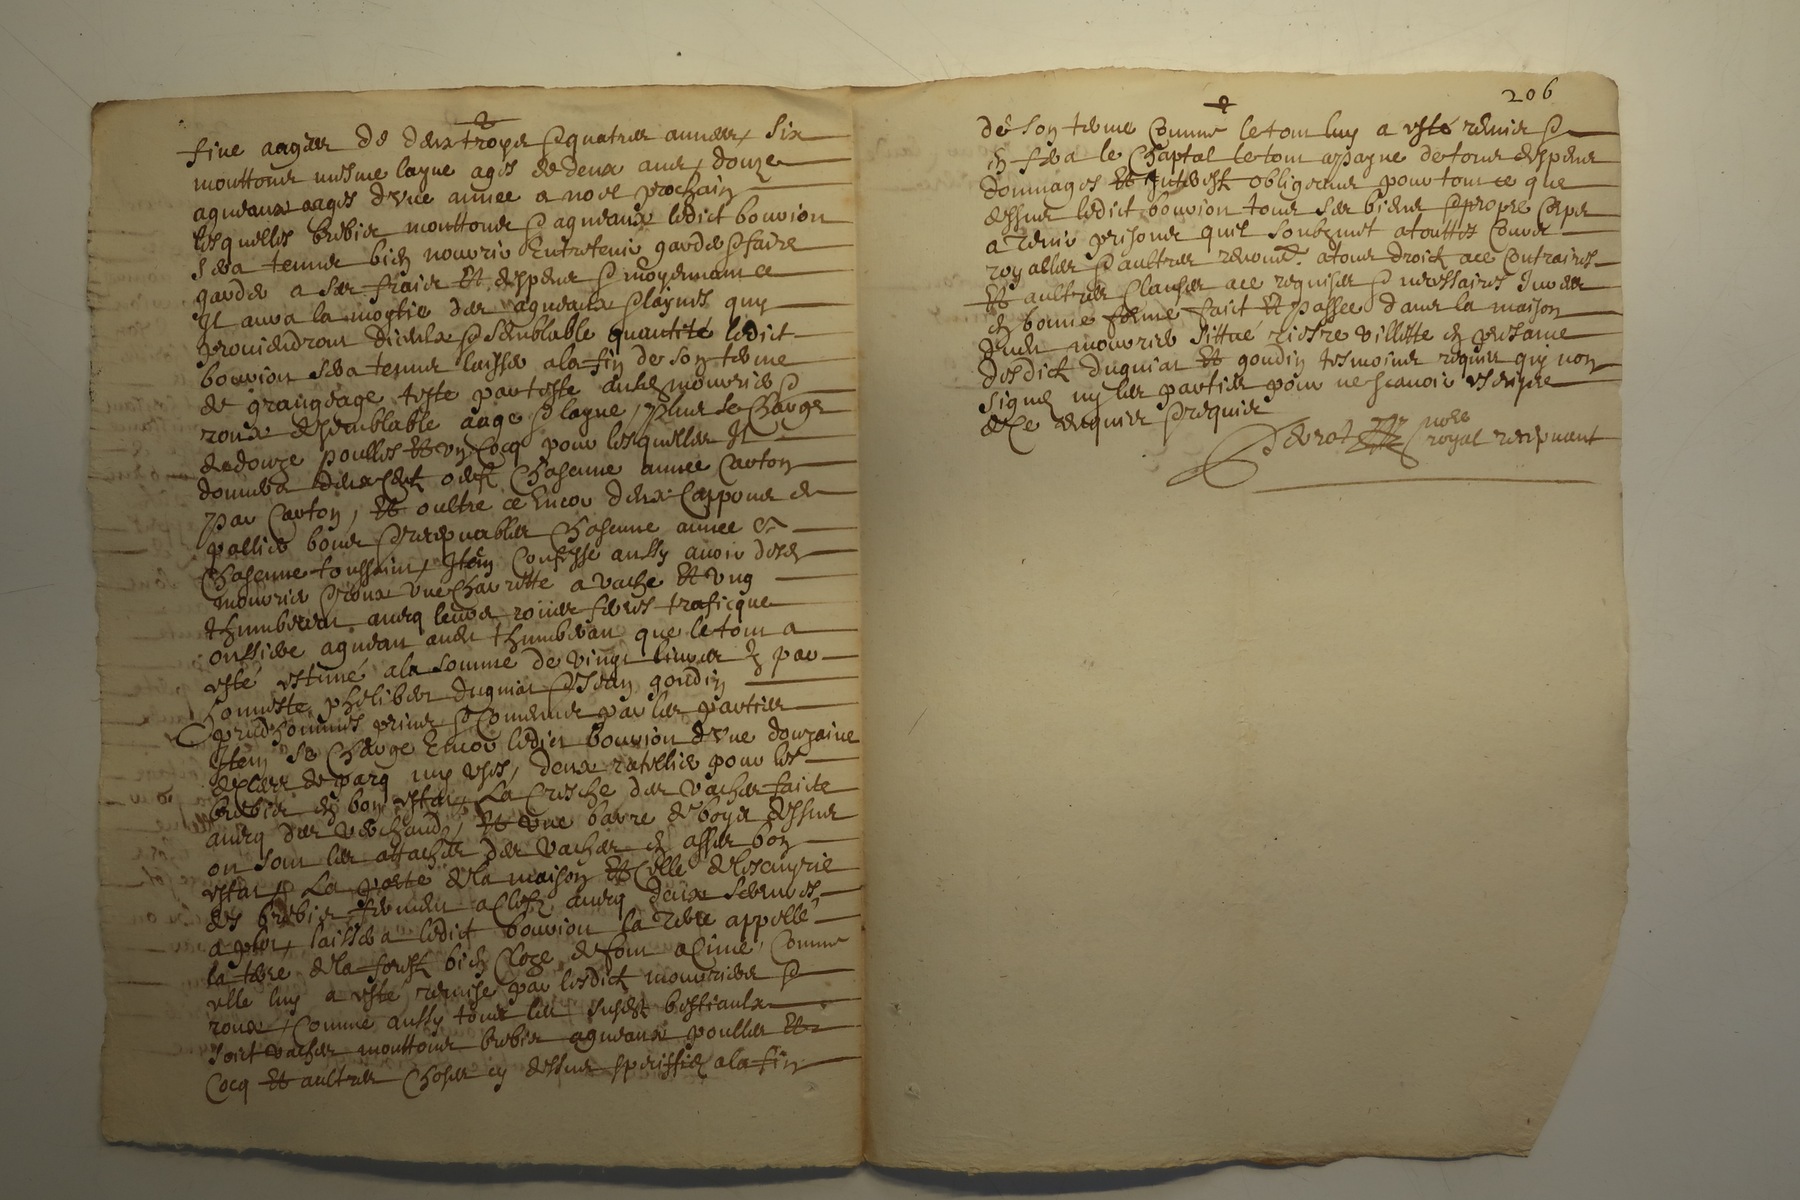 fine aagees de deux trops & quattres annees, six
mouttons mesme layne ages de deux ans, douze
agneaux aages d'une annee a noel prochain
lesquelles brebis mouttons & agneaux ledict bouvion
sera tenus bien nourrir Entretenir garder & faire
garder a ses fraicts Et despens & moyennant ce
Il aura la moytie des agneaux & laynes quy
proviendront dicelux & semblable quantité ledict
bouvion sera tenus laisser a la fin de son terme
de grangeage teste par teste ausd mourrier &
roux de semblable aage & layne, plus se charge
de douze poulles Et un Cocq pour lesquelles Il
donnera deux Cent oeufs Chascune annee Carton
par Carton, Et oultre ce Encor deux Cappons de
pallier bons & recepvables Chascune annee &
Chascune toussaint, Item Confesse aussy avoir desd
mourrier & roux une charrette a vache Et ung
thumbereau avecq leurs roues ferres
que le tout a
esté estimé a la somme de vingt livres par
honneste phelibert duguiat & Jean goudin
prudhommes prins & Convenus par les parties
Item se Charge Encor ledict bouvion d'une douzaine
de Clees de parq my uses, deux rateliers pour les
brebis en bon estat, La Cresche des vaches faicte
avecq des vechaud, Et une barre de boys dessus
ou sont les attaches des vaches en asses bon
estat, La porte de la maison Et Celle de lescuyrie
des brebis fermant a Clefz avecq deux serrures
a plus, laissera ledict bouvion la terre appellé
la terre de la forest bien Close de son acime, Comme
elle luy a esté remise par lesdict mourrier &
roux, Comme aussy tous les susdt bestiaulx
soict vaches mouttons brebis agneaux poulles Et
Cocq Et aultres choses cy dessus speciffiez a la fin
206
de son terme Comme le tout luy a esté remis &
en sera le Chaptal le tout a payne de tous despens
dommages Et Interestz obligeant pour tout ce que
dessus ledict bouvion tous ses biens & propre Corps
a tenir prison quil soubzmet a touttes Cours
royalles & aultres renonct. a tous droictz a ce Contraires
Et aultres Clauses a ce requises & necessaires Inserees
en bonne forme faict Et passee dans la maison
dud mourrier sittué riere villette en presance
desdict duguiat Et goudin tesmoins requis quy nont
signez ny les parties pour ne scavoir escripre
de Ce enquis & requis
Perrot nore
royal recepvant